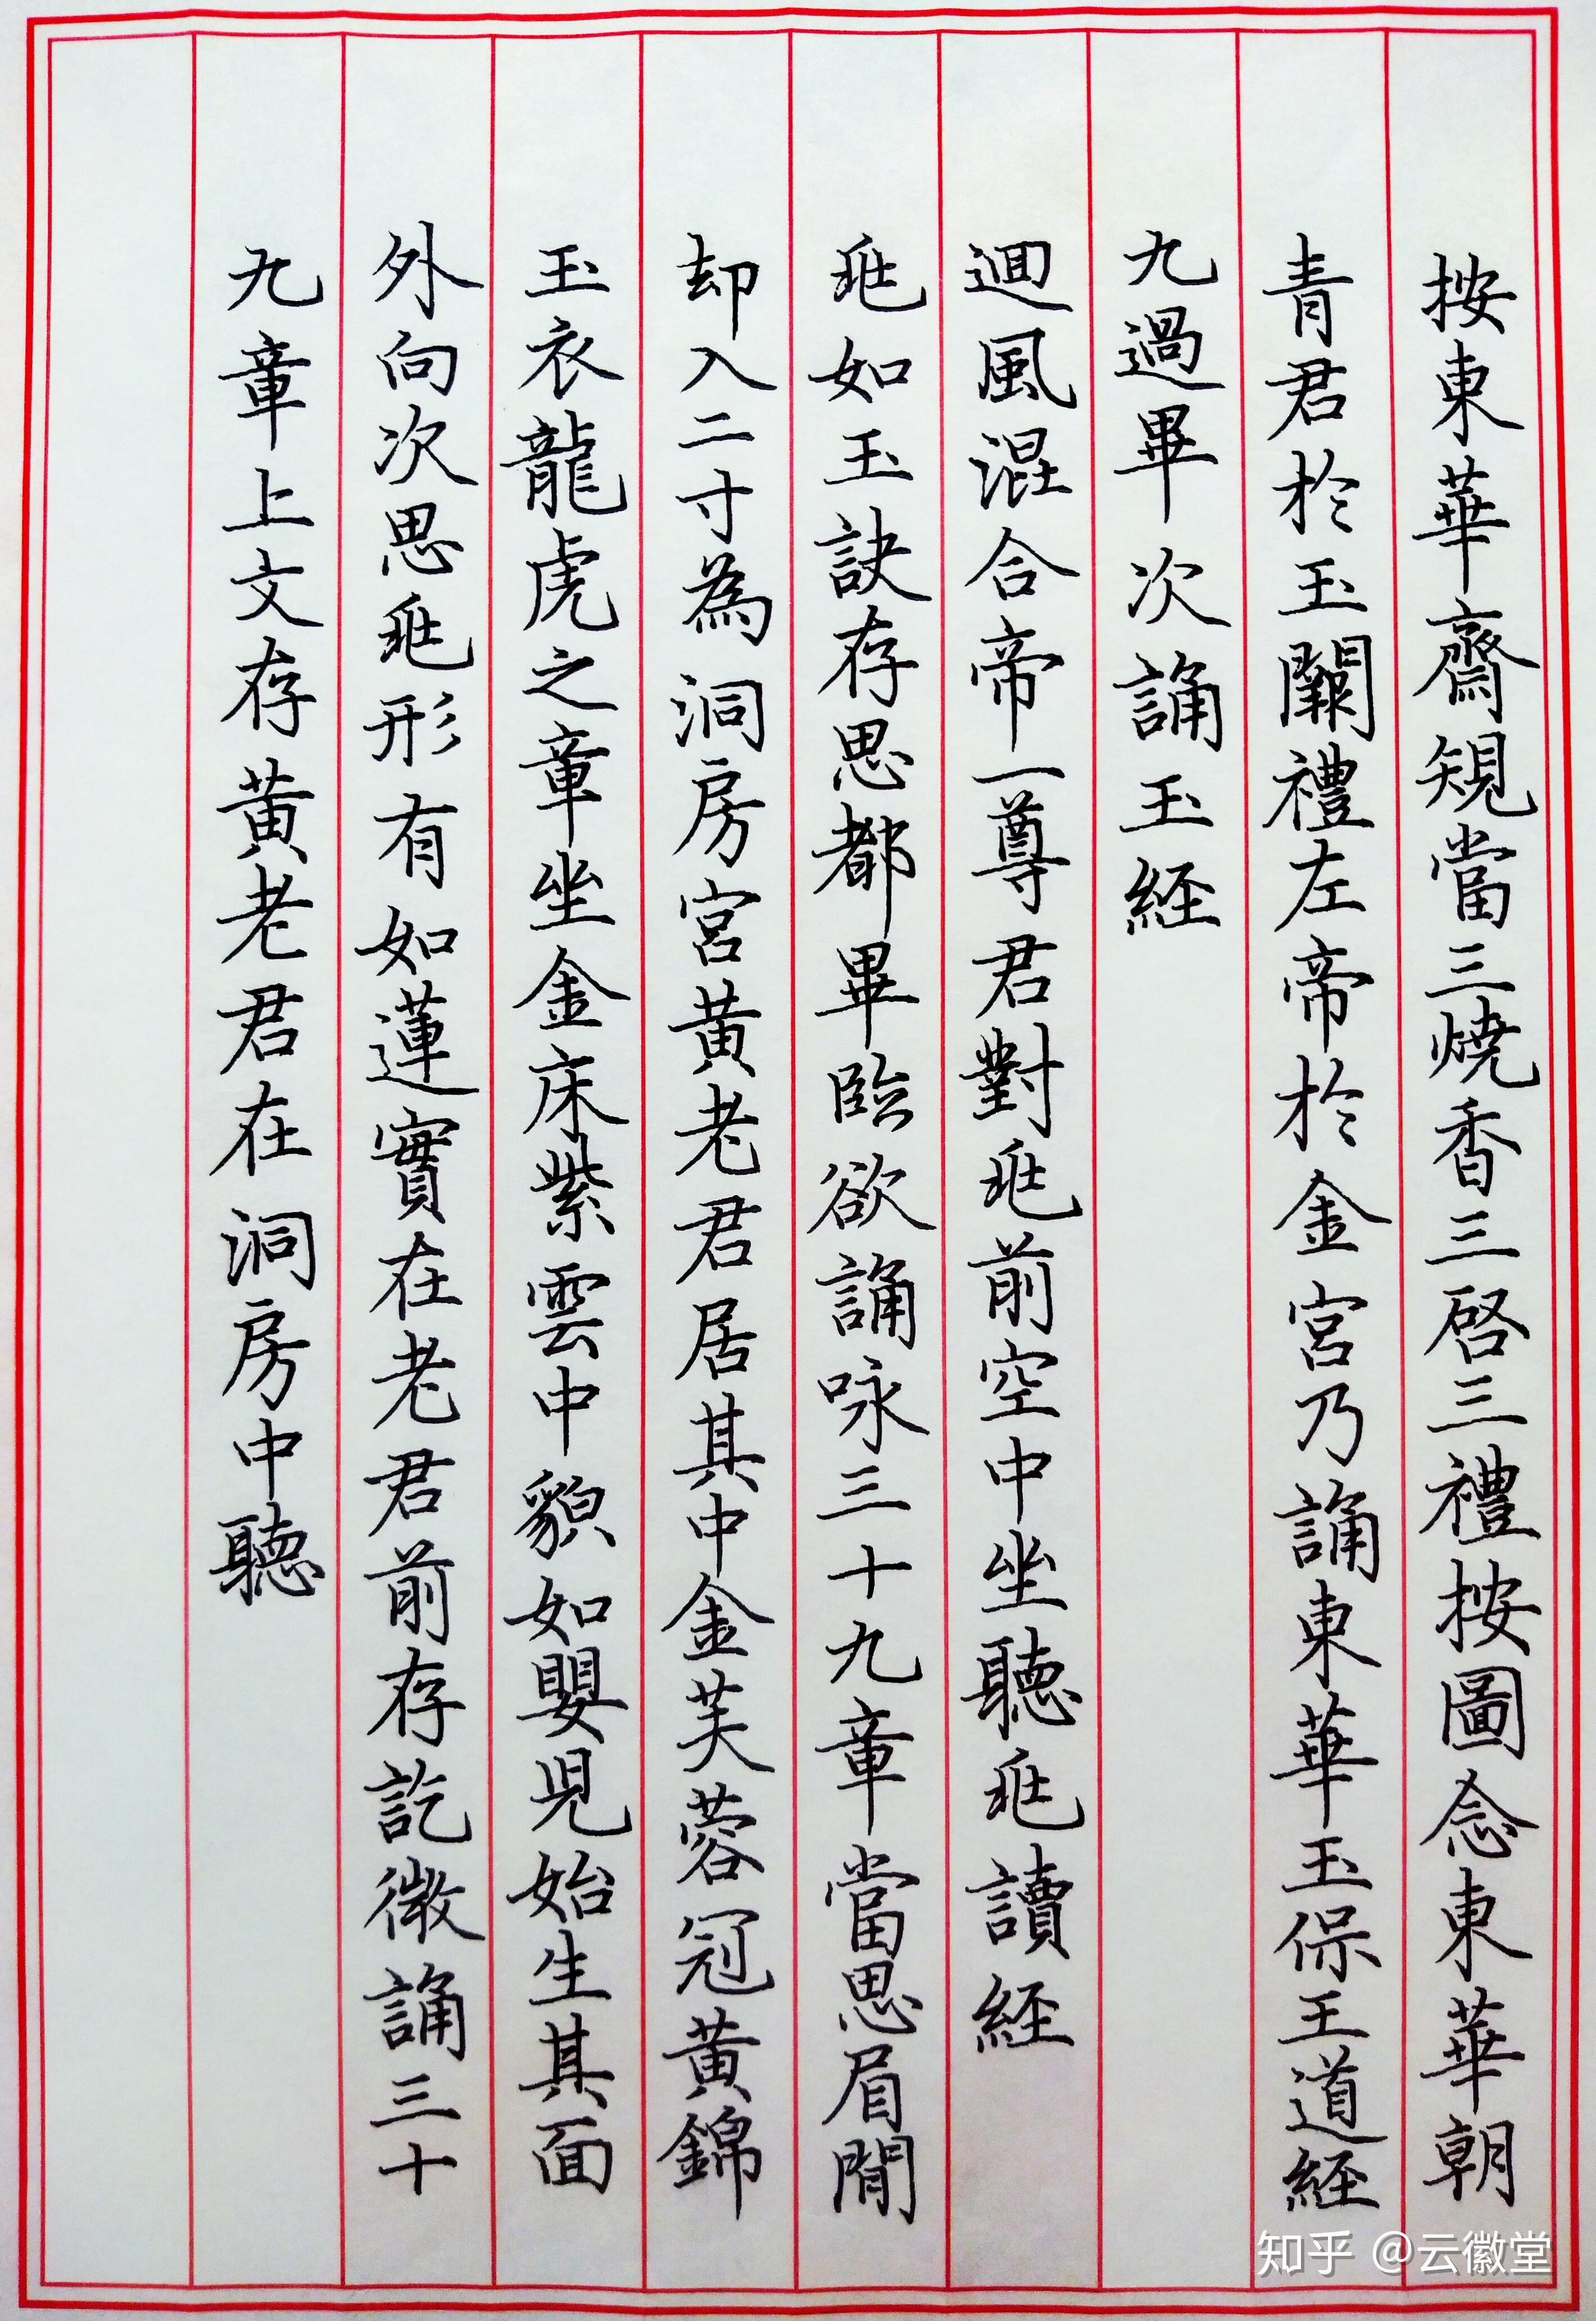 按東華齋䂓當三燒香三啓三禮按圖念東華朝
青君於玉闕禮左帝於金宮乃誦東華玉保王道経
九過畢次誦玉経
迴風混合帝一尊君對兆前空中坐聽兆讀経
兆如玉訣存思都畢臨欲誦咏三十九章當思眉閒
却入二寸為洞房宮黃老君居其中金芙蓉冠黃錦
玉衣龍虎之章坐金床紫雲中貌如嬰兒始生其面
外向次思兆形有如蓮實在老君前存訖微誦三十
九章上文存黃老君在洞房中聽
知乎 @云徽堂